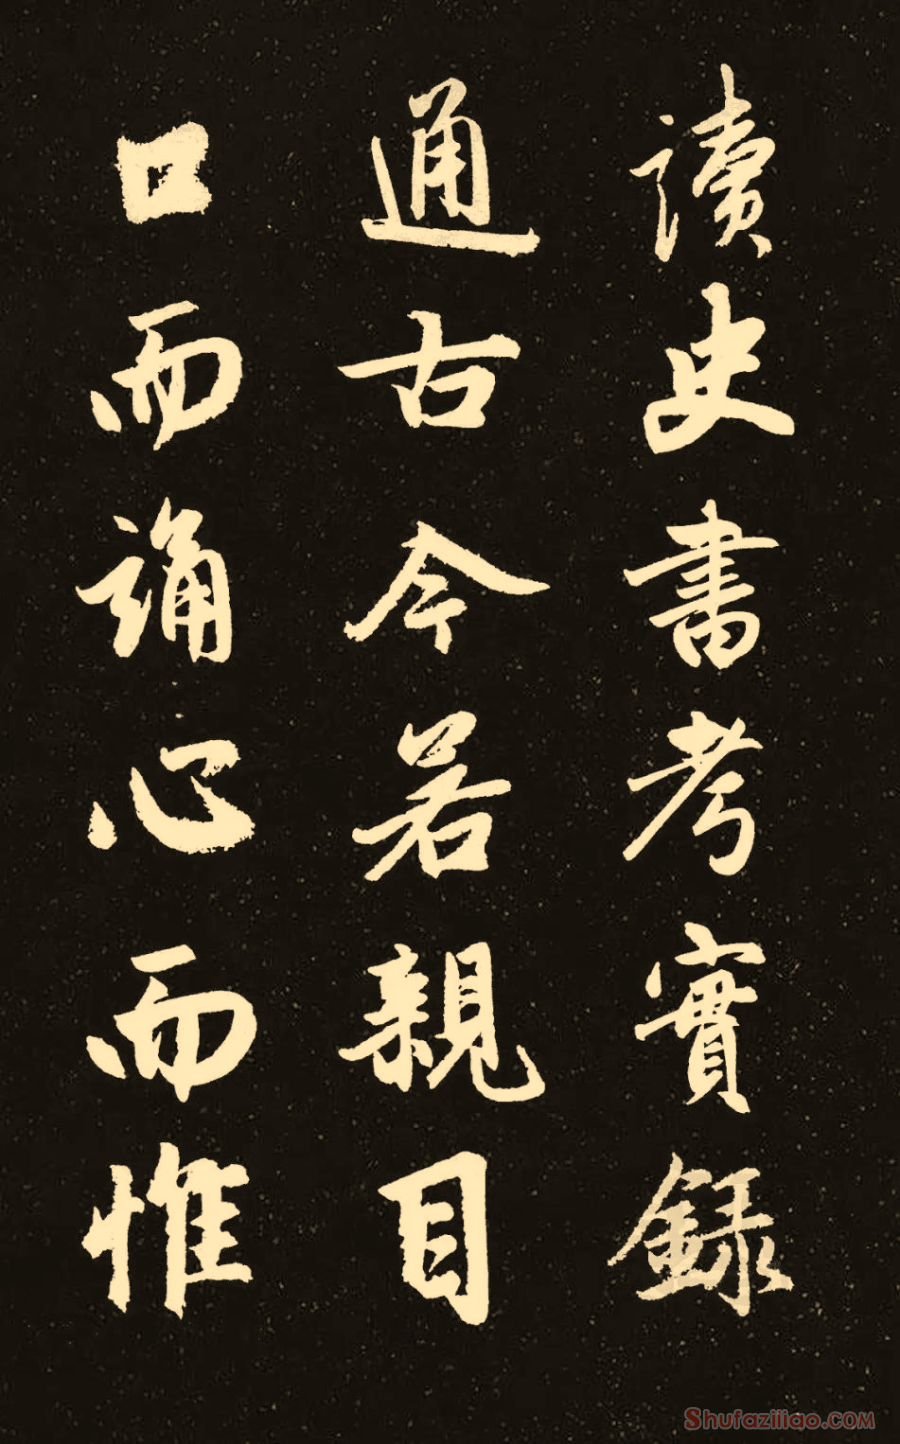 讀史書考實録
通古今若親目
口而誦心而惟
Shufaziliao.com